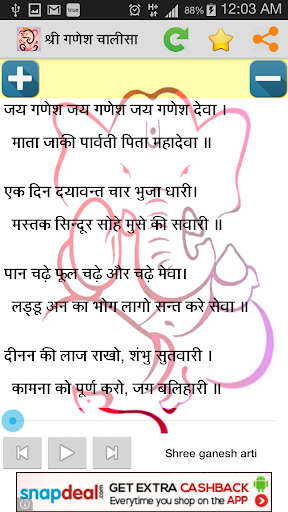 88% 12:03 AM
श्री गणेश चालीसा
जय गणेश जय गणेश जय गणेश देवा ।
माता जाकी पार्वती पिता महादेवा ॥
एक दिन दयावन्त चार भुजा धारी।
मस्तक सिन्दूर सोहे मुसे की सवारी ॥
पान चढ़े फूल चढ़े और चढ़े मेवा।
लड्डू अन का भोग लागो सन्त करे सेवा ॥
दीनन की लाज राखो, शंभु सुतवारी ।
कामना को पूर्ण करो, जग बलिहारी ॥
Shree ganesh arti
snapdeal.com
GET EXTRA CASHBACK
Everytime you shop on the APP